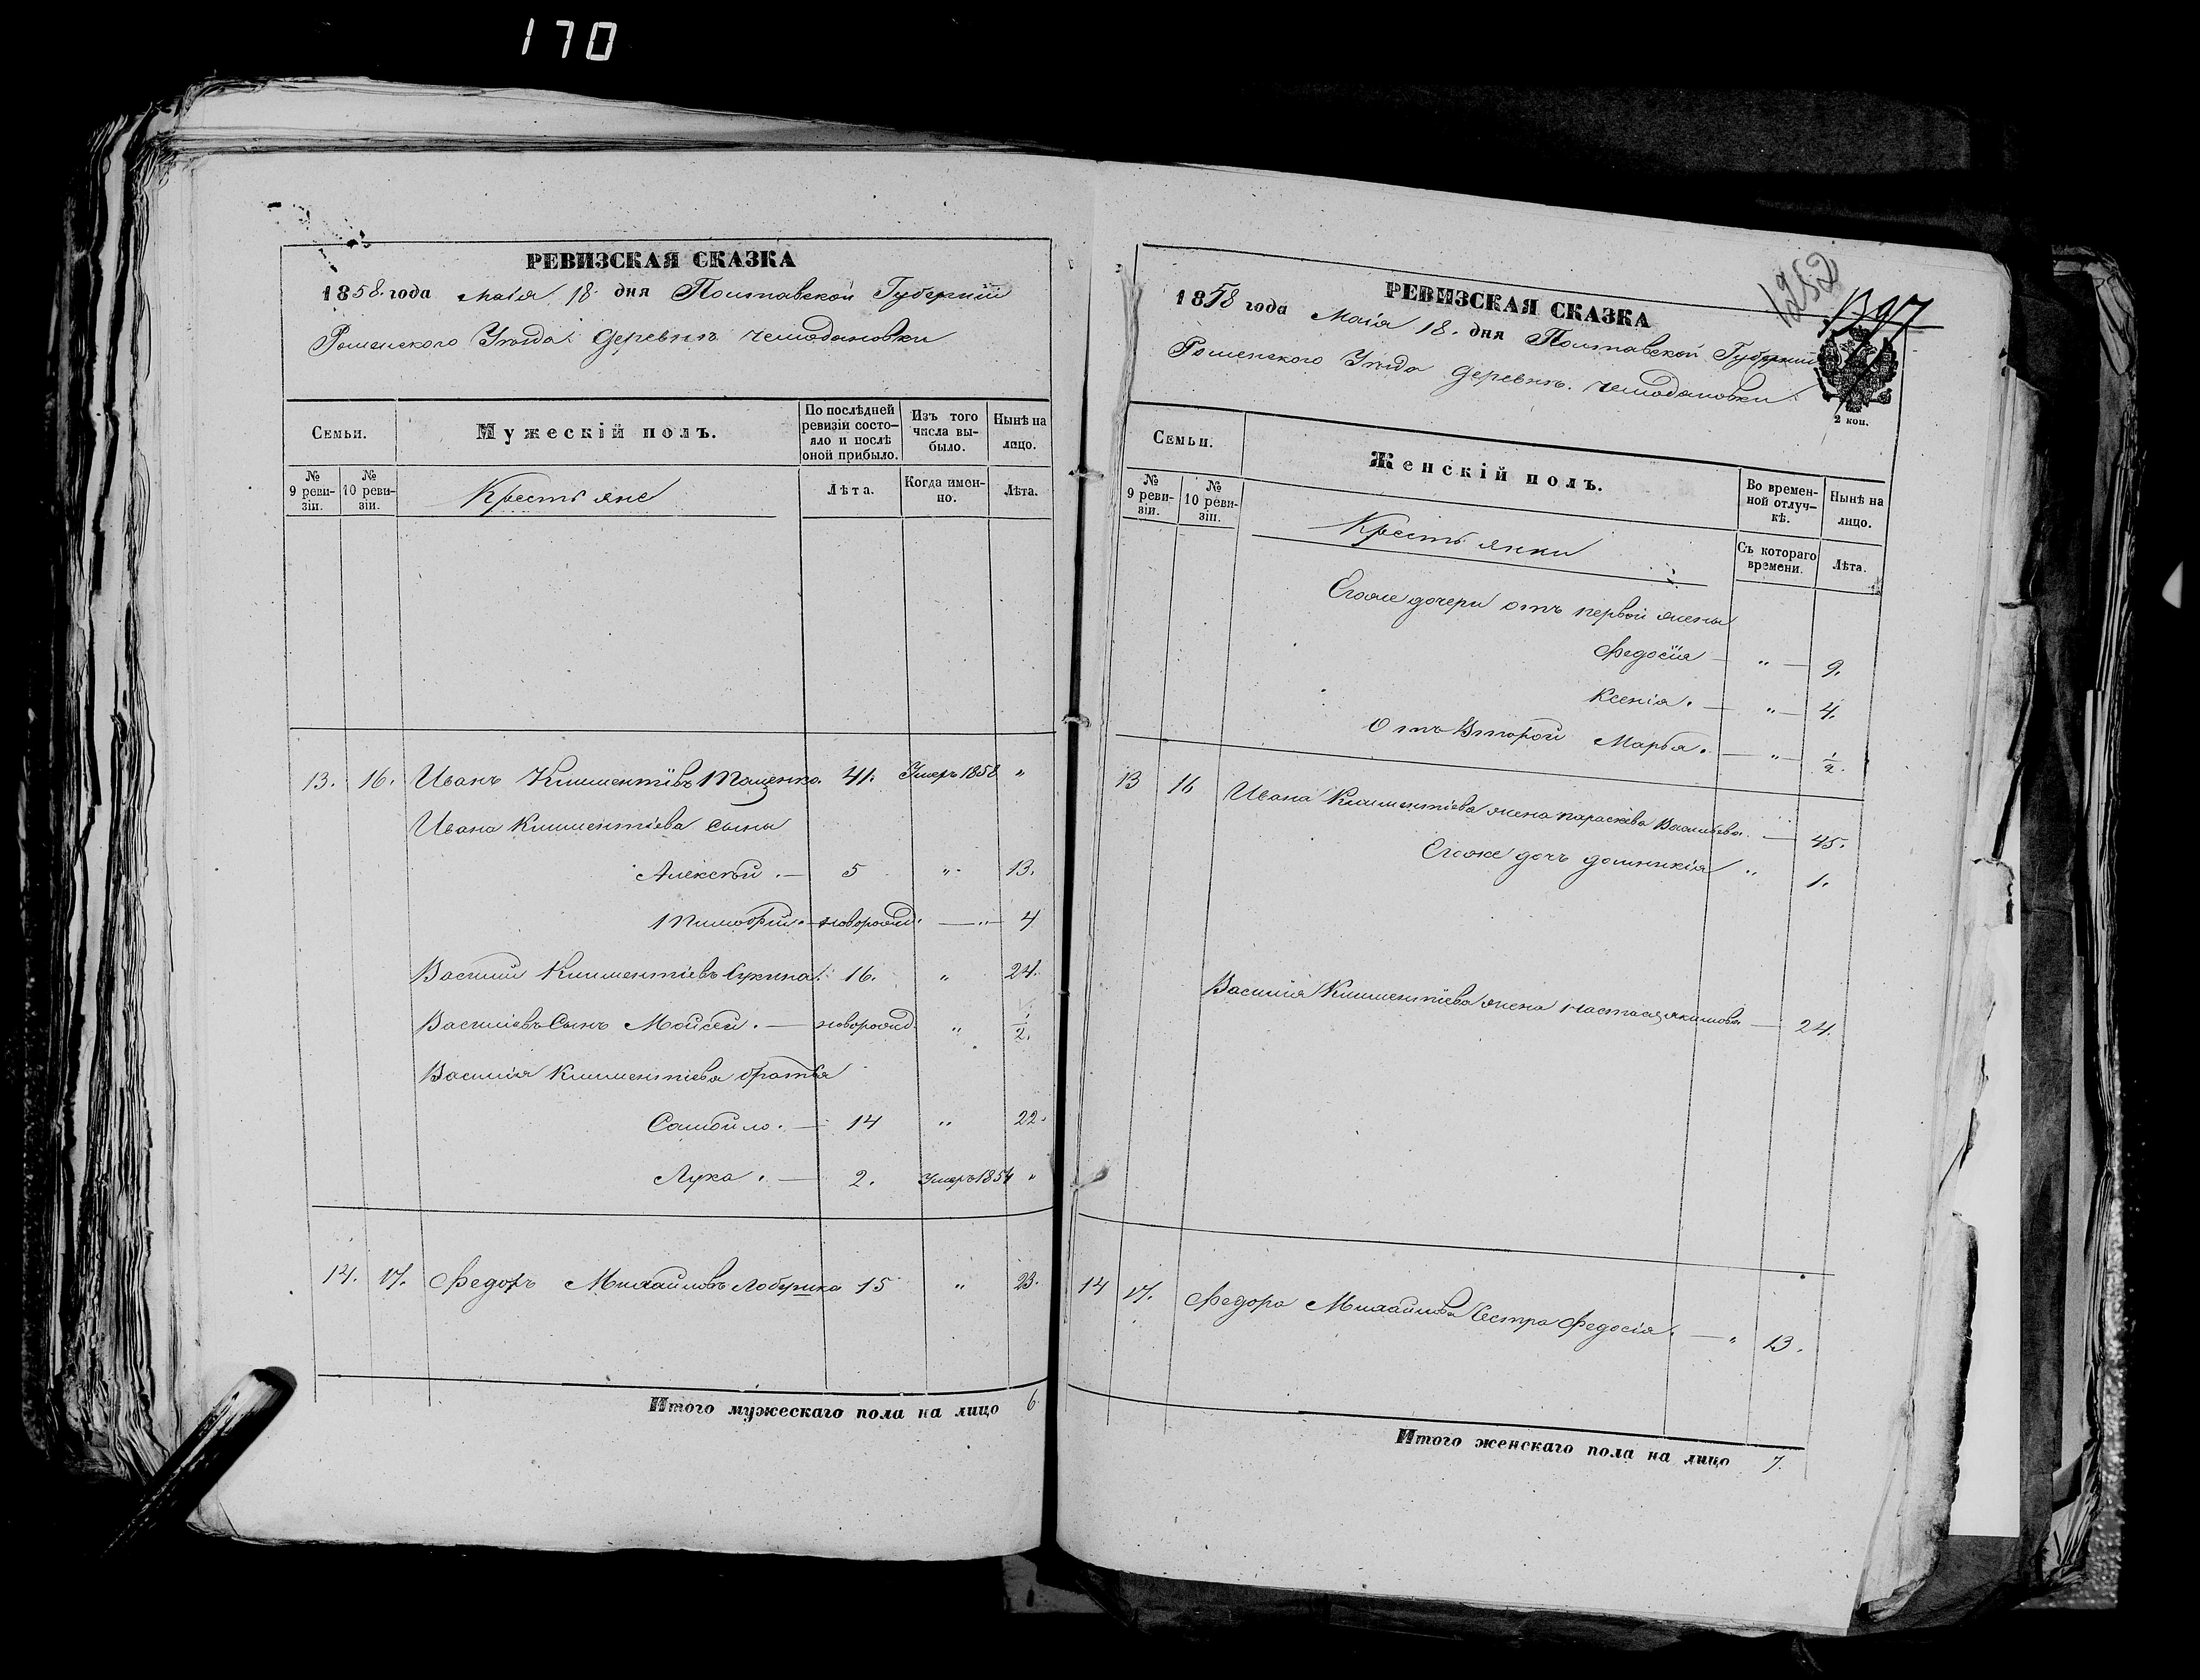 170
РЕВИЗСКАЯ СКАЗКА
1858 года Маія 18 дня Полтавской Губерніи
Роменского Уѣзда деревнѣ Чемодановки
Семьи.
Мужескій полъ.
По послѣдней ревизіи состояло и послѣ оной прибыло.
Изъ того числа выбыло.
Нынѣ на лицо.
№ 9 ревизіи.
№ 10 ревизіи.
Крестьяне
Лѣта.
Когда именно.
Лѣта.
13. 16. Иванъ Климентіевъ Тощенко 41. Умеръ 1858 "
Ивана Климентіева сыны
Алексѣй. — 5 " 13.
Тимофій. — новорожд. — " — 4
Василій Климентіевъ 16. " 24.
Василіевъ Сынъ Мойсей. — новорожд. " 1/2.
Василія Климентіева братья
Самойло. — 14 " 22.
Лука. — 2. Умеръ 1854 "
14. 17. Федоръ Михайловъ 15 " 23.
Итого мужескаго пола на лицо 6
1252
1397
РЕВИЗСКАЯ СКАЗКА
1858 года Маія 18. дня Полтавской Губерніи
Роменского Уѣзда деревнѣ. Чемодановки
2 коп.
Семьи.
Женскій полъ.
Во временной отлучкѣ.
Нынѣ на лицо.
№ 9 ревизіи.
№ 10 ревизіи.
Крестьянки
Съ котораго времени.
Лѣта.
Егоже дочери отъ первой жены
Федосія — " — 9.
Ксенія. — " — 4.
Отъ Второй Марья. — " — 1/2.
13 16 Ивана Климентіева жена Параскева Васильева — 45.
Егоже дочь Домникія " 1.
Василія Климентіева жена Настася Якимова — 24.
14 17. Федора Михайлова Сестра Федосія. — " 13.
Итого женскаго пола на лицо 7.